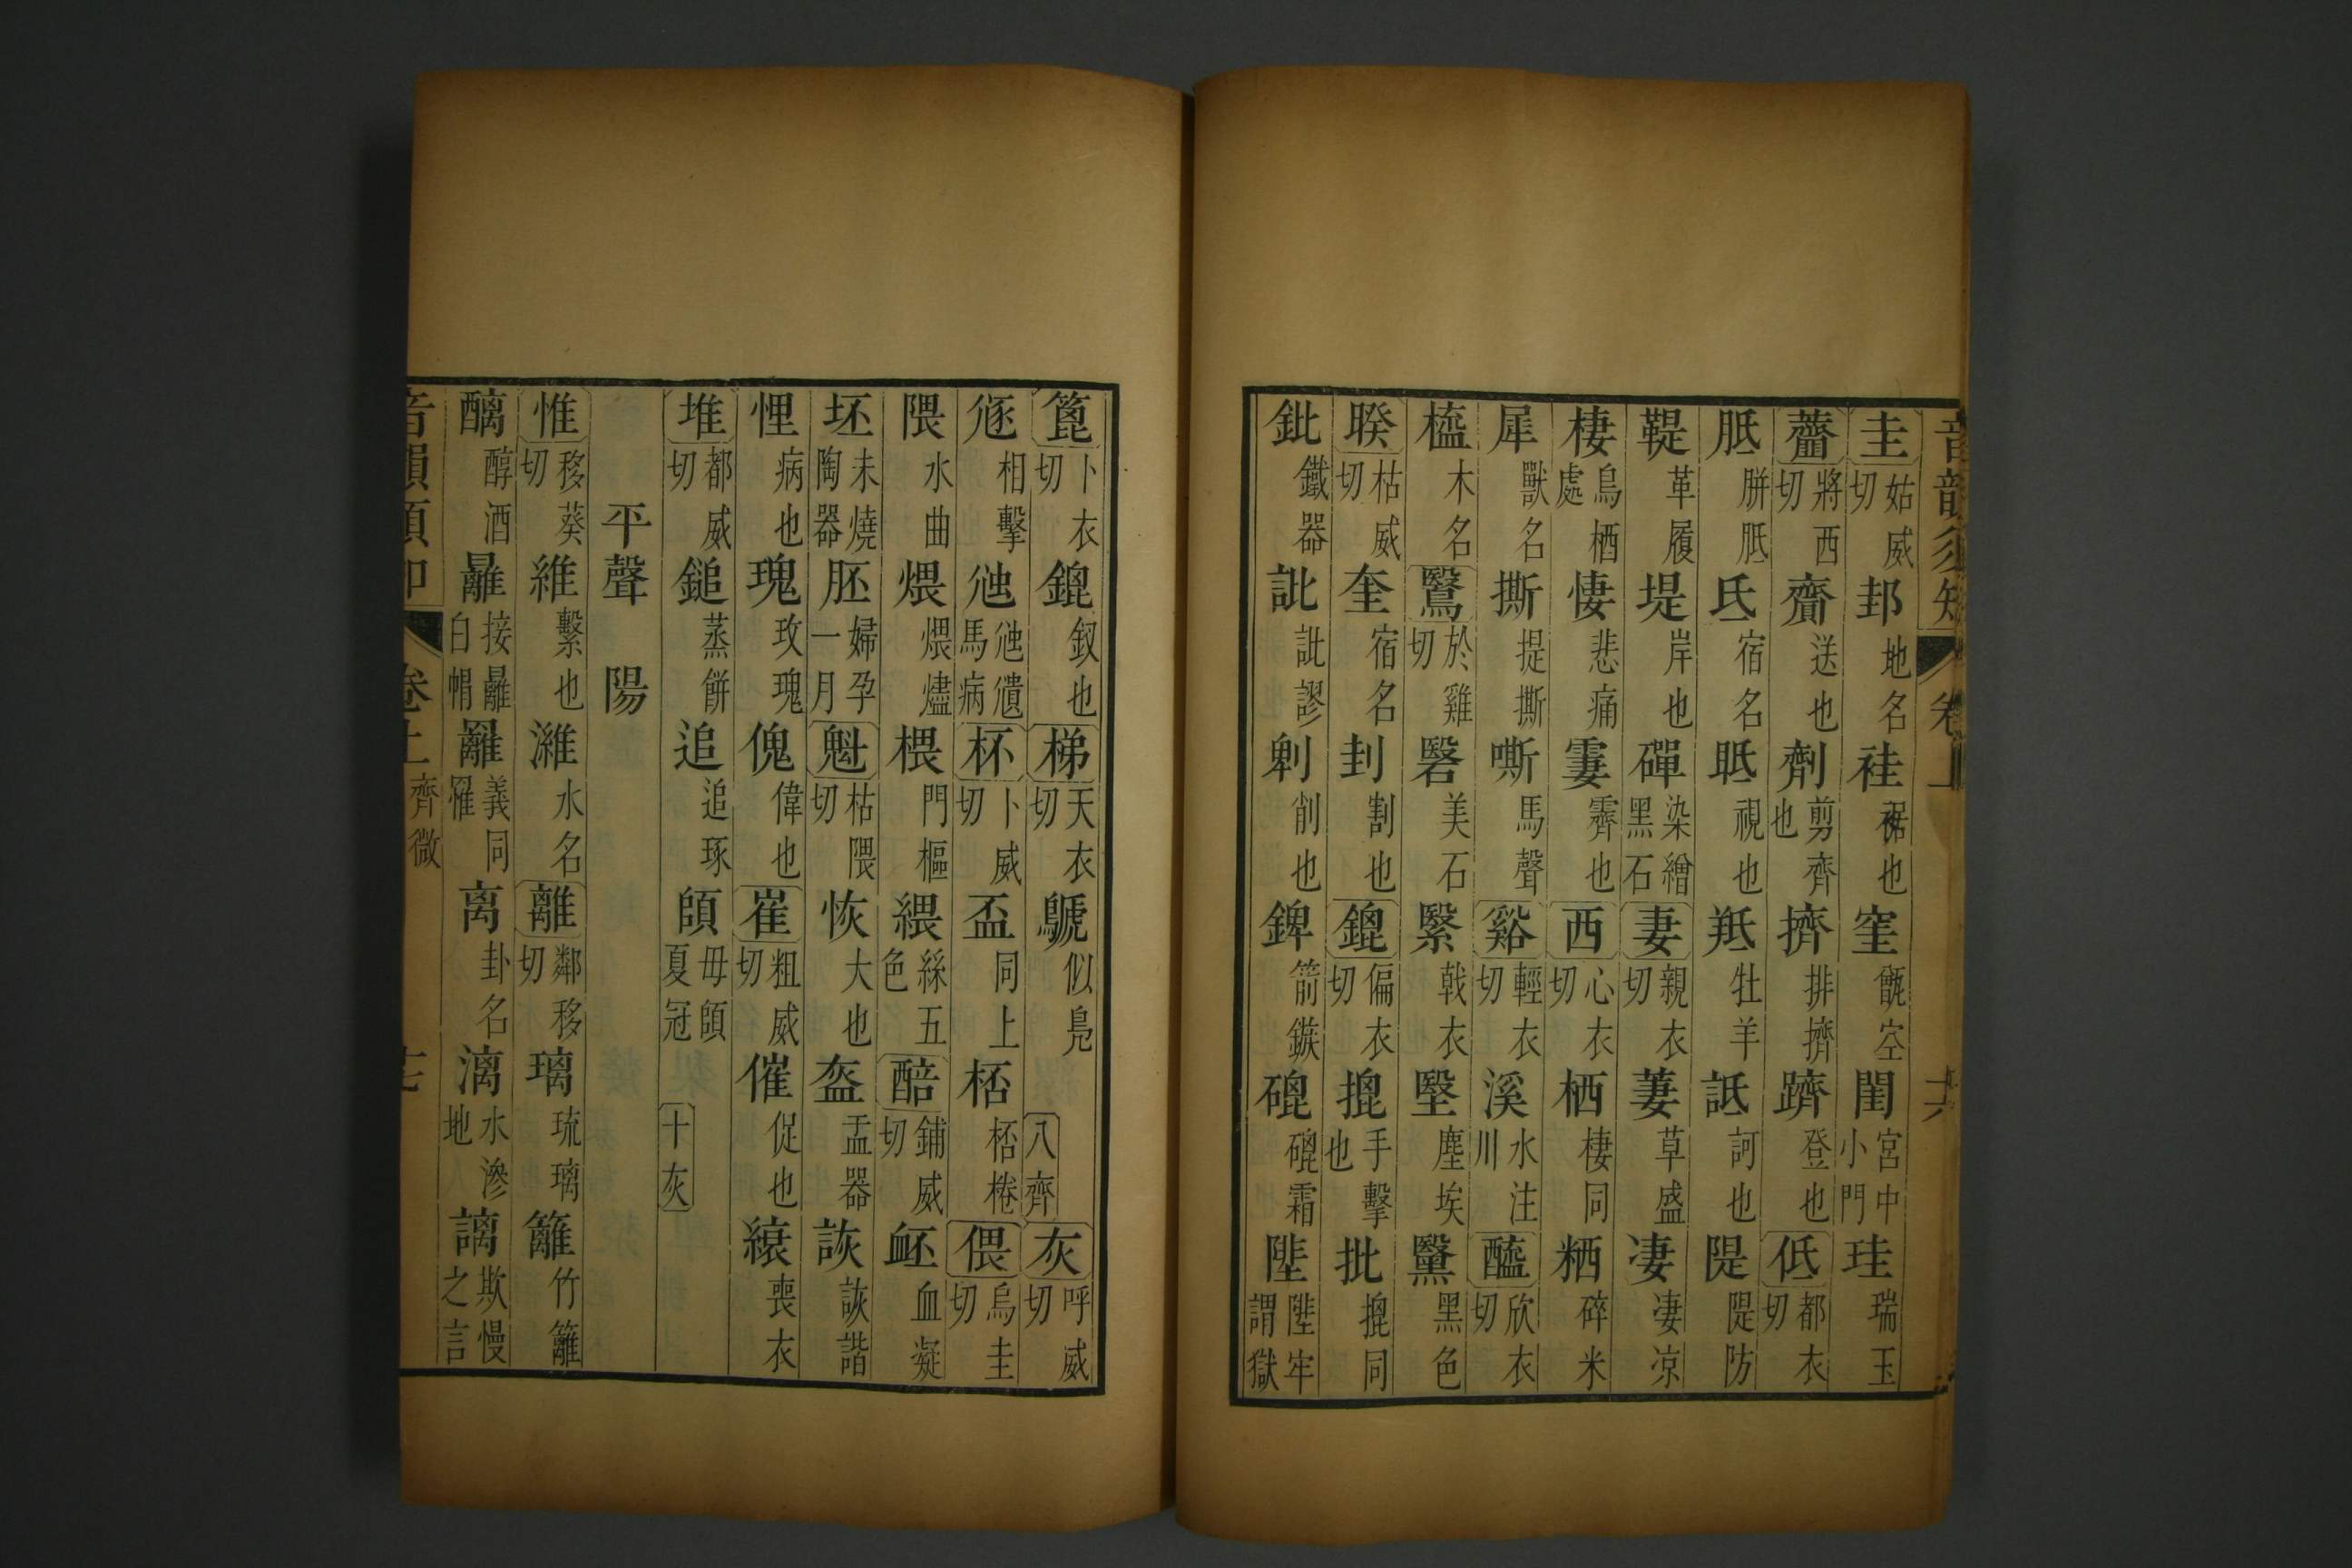 音韻須知 卷上 十六
圭姑威切邽地名袿裾也窐甑空閨宮中小門珪瑞玉
虀將西切齎送也劑剪齊也擠排擠躋登也低都衣切
胝胼胝氐宿名眡視也羝牡羊詆訶也隄隄防
鞮革履堤岸也磾染繒黑石妻親衣切萋草盛凄凄凉
棲鳥栖處悽悲痛霋霽也西心衣切栖棲同粞碎米
犀獸名撕提撕嘶馬聲谿輕衣切溪水注川醯欣衣切
橀木名鷖於雞切硻美石繄戟衣塈塵埃黳黑色
睽枯威切奎宿名刲割也鎞偏衣切㨢手擊也批㨢同
鈚鐵器訿訿謬剌削也錍箭鏃磇磇霜陛陛牢謂獄
篦卜衣切鎞釵也梯天衣切鷈似鳧八齊灰呼威切
㢠相擊虺虺隤馬病杯卜威切盃同上桮桮棬偎烏圭切
隈水曲煨煨燼椳門樞緭絲五色醅鋪威切衃血凝
坯未燒陶器胚婦孕一月魁枯隈切恢大也盔盂器詼詼諧
悝病也瑰玫瑰傀偉也崔粗威切催促也縗喪衣
堆都威切鎚蒸餅追追琢頧毋頧夏冠十灰
平聲 陽
惟移葵切維繫也濰水名離鄰移切璃琉璃籬竹籬
醨醇酒䍦接䍦白帽䍦義同罹离卦名漓水滲地人謧欺慢之言
音韻須知 卷上 齊微 十七